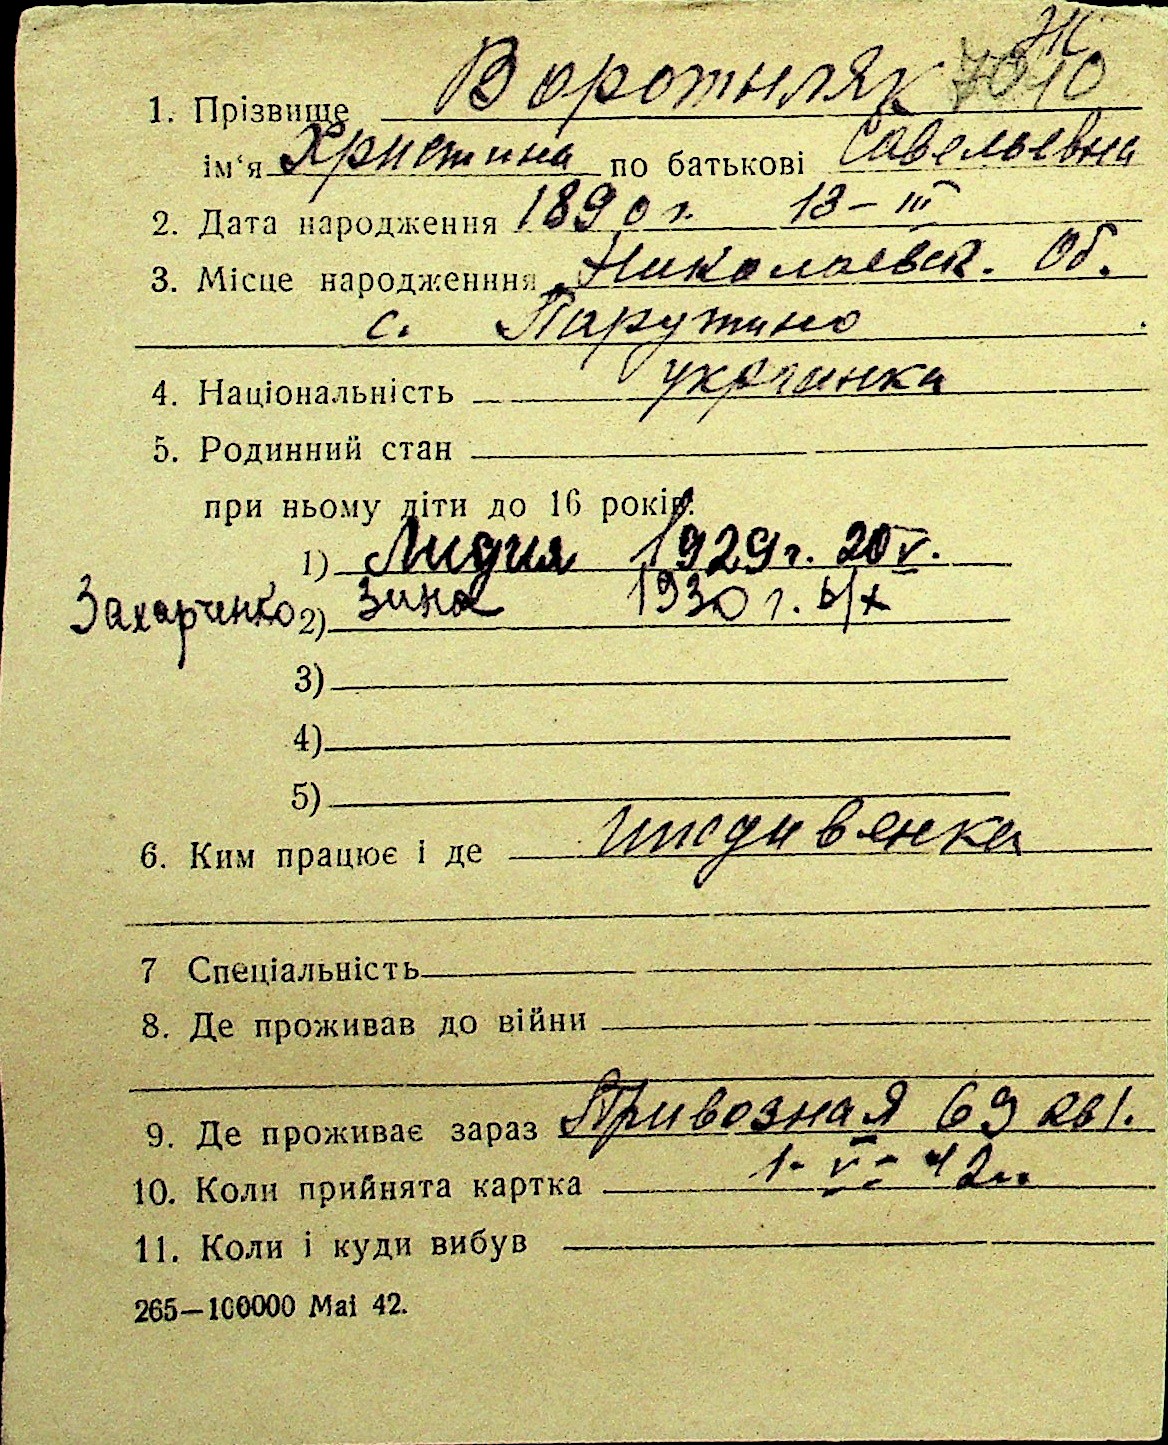 Ж
1. Прізвище Воротняк 7010
ім'я Христина по батькові Савельевна
2. Дата народження 1890 г. 13-III
3. Місце народженння Николаевск. Об.
с. Парутино
4. Національність украинка
5. Родинний стан
при ньому діти до 16 років:
1) Лидия 1929 г. 20 V.
Захарченко 2) Зина 1930 г.
3)
4)
5)
6. Ким працює і де иждивянка
7 Спеціальність
8. Де проживав до війни
9. Де проживає зараз Привозная 69 кв 1.
10. Коли прийнята картка 1-VI-42 г.
11. Коли і куди вибув
265—100000 Mai 42.